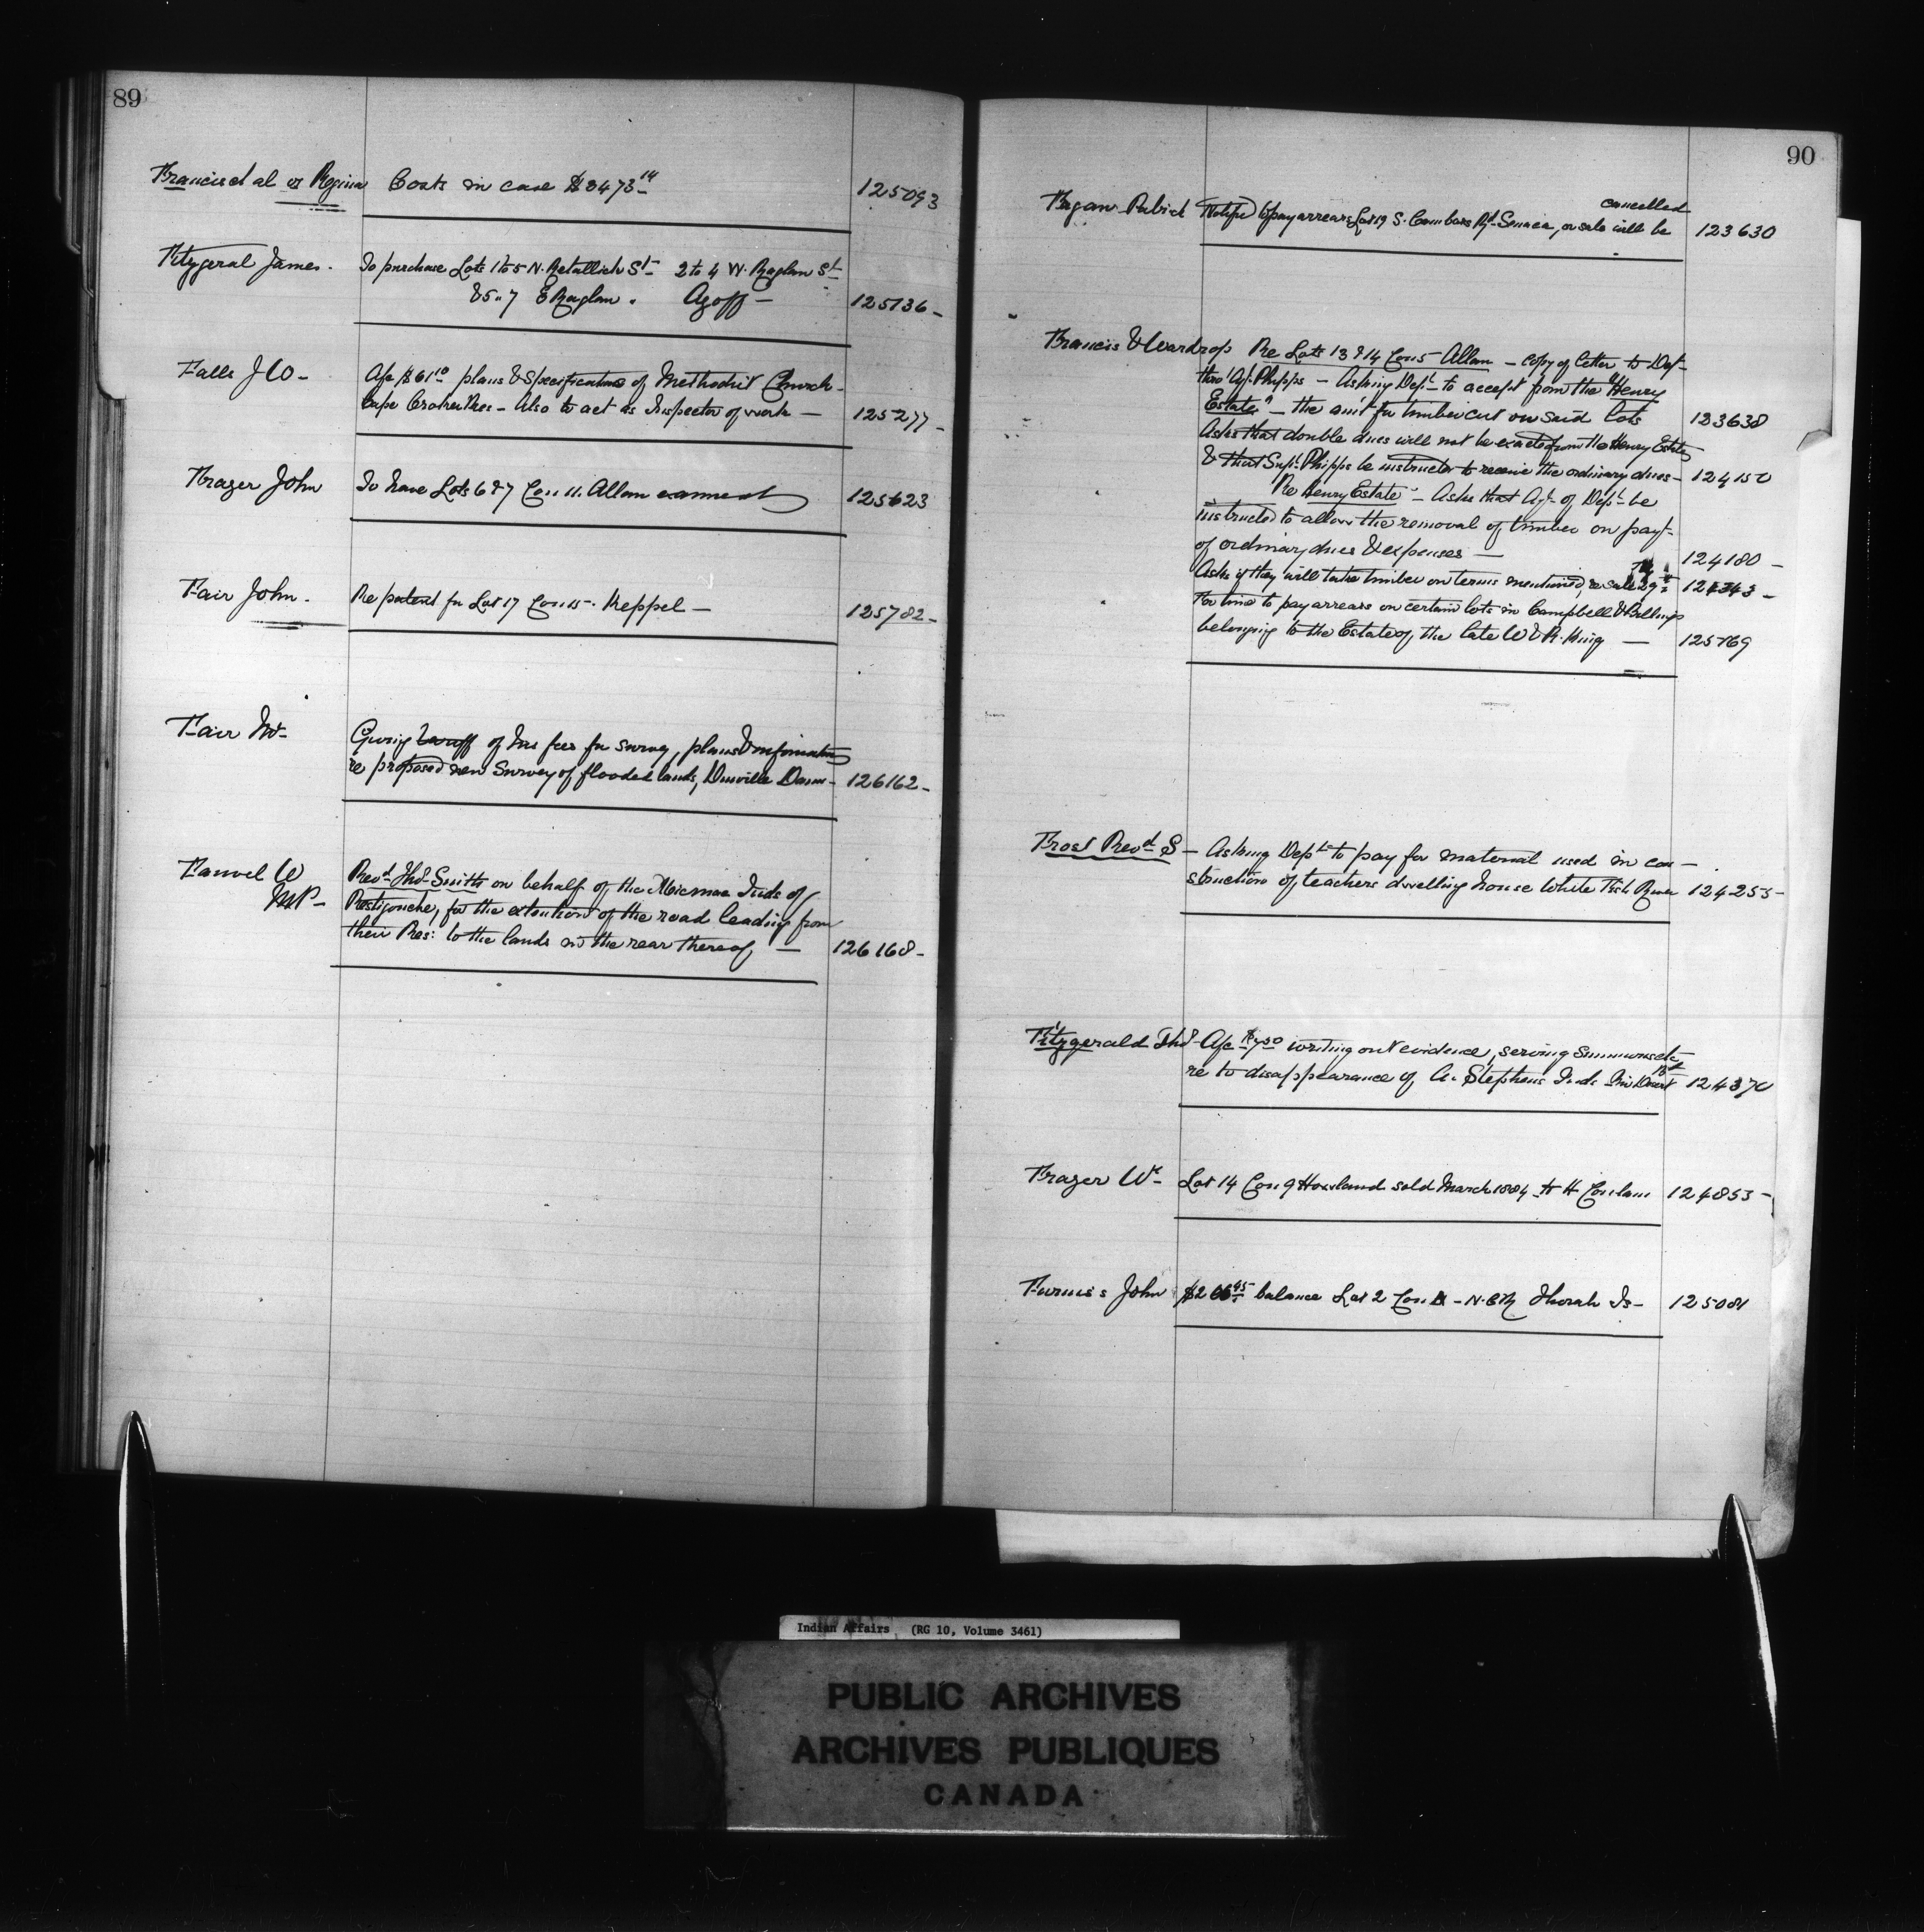 89
Francis et al vs Regina Costs in case $8473.14 125093
Fitzgeral James. To purchase Lots 1 to 5 N. Retallick St. 2 to 4 W. Raglan St.
& 5 " 7 E Raglan. Azoff — 125136-
Falls J W- A/c $61.10 plans & Specifications of Methodist Church-
Cape Croker Res - Also to act as Inspector of work — 125277-
Frazer John To have Lots 6 & 7 Con 11. Allan 125623
Fair John. Re patent for Lot 17 Con 15 - Keppel — 125782-
Fair Mr- Giving of his fees for survey, plans & information
re proposed new Survey of flooded lands, Dunville Dam- 126162-
Fauvel W Revd. Thos. Smith on behalf of the Micmac Inds of
MP- Restigouche, for the extention of the road leading from
their Res: to the lands in the rear thereof, — 126168-
90
cancelled
Fagan Patrick Notified to pay arrears Lot 19 S. Cambers Rd. Seneca, or sale will be 123630
Francis & Wardrop Re Lots 13 & 14 Con 5 Allan - copy of letter to Dept-
thro' Agt. Phipps - Asking Dept- to accept from the Henry
Estate" - the amt for timber cut on said lots 123638
Asks that double dues will not be exacted from the Henry Estate
& that Supt. Phipps be instructed to receive the ordinary dues- 124150
"Re Henry Estate" - Asks that Agt- of Dept- be
instructed to allow the removal of timber on payt-
of ordinary dues & expenses — 124180-
Asks if they will take timber on terms mentioned, re sale 29th 124343-
For time to pay arrears on certain lots in Campbell & Billings
belonging to the Estate of the late W & R. King — 125769
Frost Revd. S - Asking Dept. to pay for material used in con-
struction of teachers dwelling house White Fish River 124255-
Fitzgerald Thos A/c $7.50 writing out evidence, serving Summons etc
re to disappearance of A. Stephens Ind. 124370
Frazer Wm- Lot 14 Con 9 Howland sold March 1884 to H Conlam 124853-
Furniss John balance Lot 2 Con A - N. Thorah Is- 125081
Indian Affairs (RG 10, Volume 3461)
PUBLIC ARCHIVES
ARCHIVES PUBLIQUES
CANADA